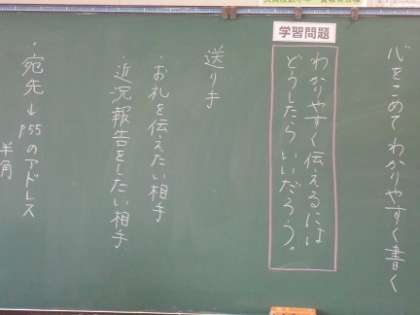 心をこめてわかりやすく書く
学習問題
わかりやすく伝えるには
どうしたらいいだろう。
送り手
・お礼を伝えたい相手
近況報告をしたい相手
・宛先→P55のアドレス
半角